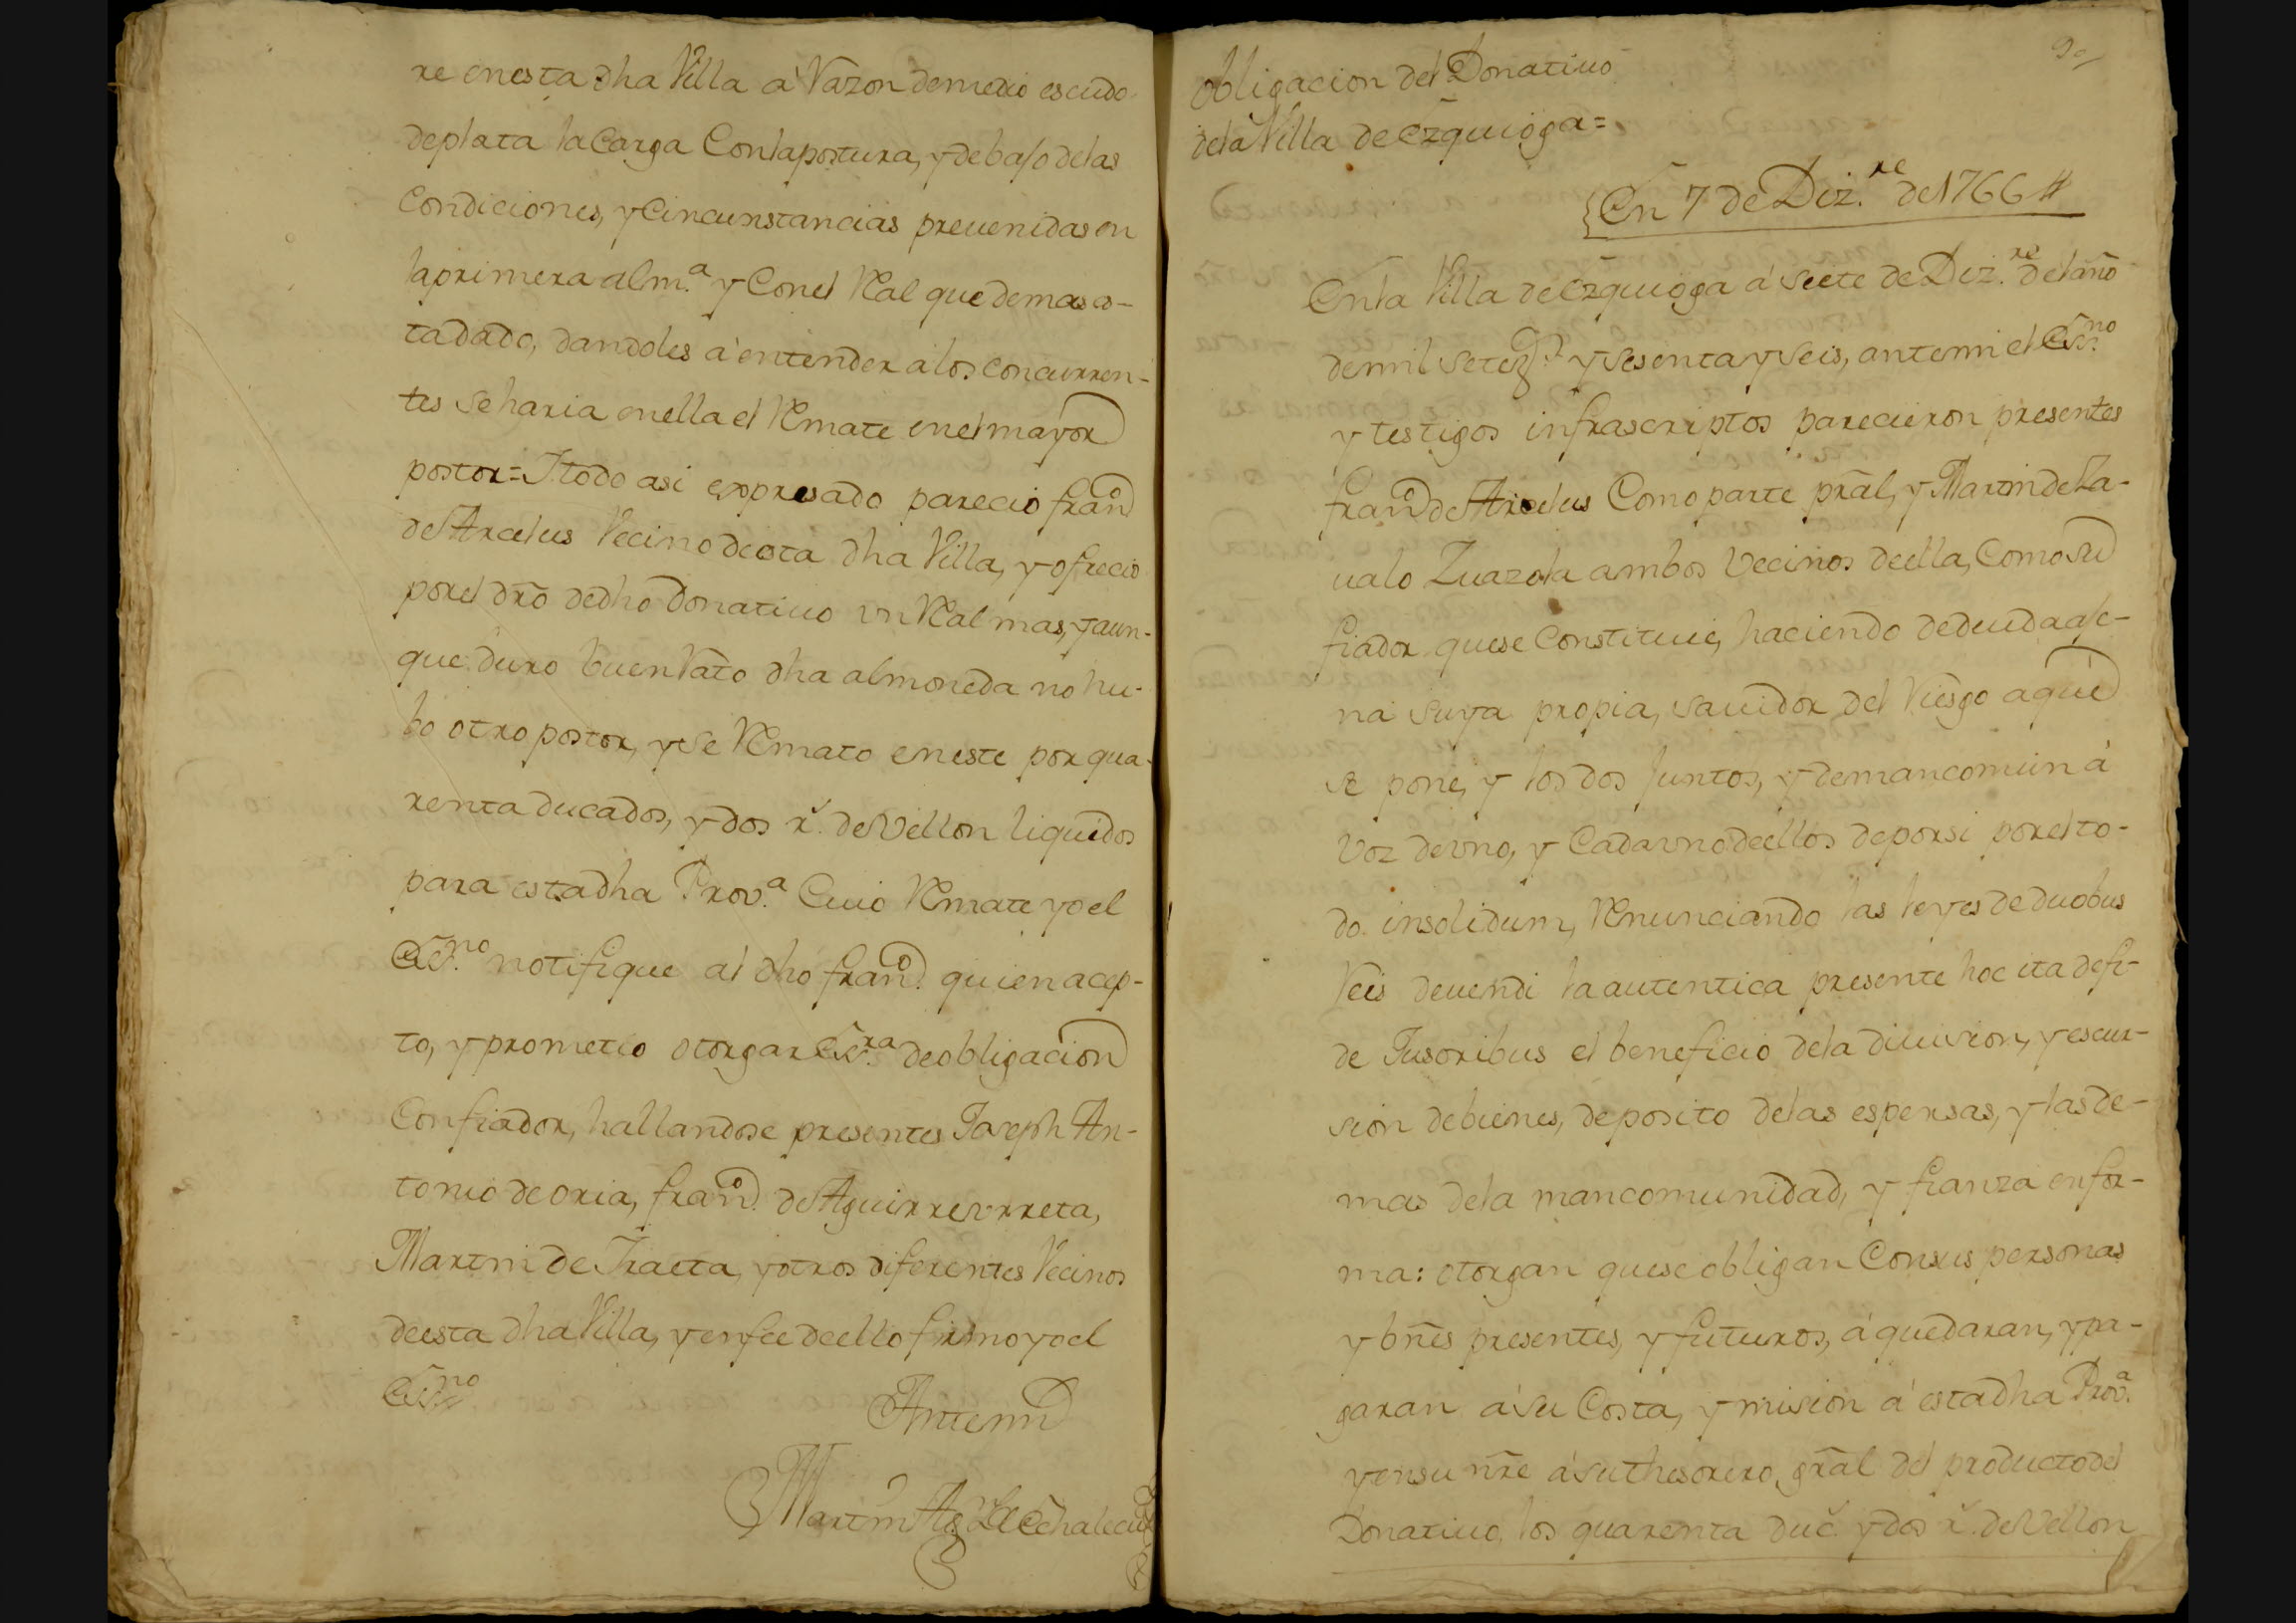 re en esta dha Villa a Razon de medio escudo
de plata la Carga Con la postura, y debajo de las
Condiciones, y Circunstancias prevenidas en
la primera alm.ª y Con el Real que demas a-
ta dado, dandoles a entender a los concurren-
tes se haria en ella el Remate en el mayor
postor = I todo asi expresado parecio fran.co
de Arcelus Vecino de esta dha Villa, y ofrecio
por el dro de dho Donatiuo vn Real mas, y aun-
que duro buen Rato dha almoneda no hu-
bo otro postor, y se Remato en este por qua-
renta ducados, y dos r.s de Vellon liquidos
para esta dha Prov.ª Cuio Remate yo el
Es.no notifique al dho fran.co quien acep-
to, y prometio otorgar Es.ra de obligacion
Con fiador, hallandose presentes Joseph An-
tonio de oria, fran.co de Aguirre vrreta,
Martin de Iraeta, y otros diferentes Vecinos
de esta dha Villa, y en fee de ello firmo yo el
Es.no
Ante mi
Martin Ag.n de Echalecu
obligacion del Donatiuo
de la Villa de Ezquioga =
En 7 de Diz.re de 1766 //
En la Villa de Ezquioga á siete de Diz.re del año
de mil setez.s y sesenta y seis, ante mi el Es.no
y testigos infrascriptos parecieron presentes
fran.co de Arcelus Como parte pral, y Martin de Za-
ualo Zuazola ambos Vecinos de ella, Como su
fiador que se Constituie, haciendo de deuda aje-
na suya propia, sauidor del Riesgo a que
se pone, y los dos Juntos, y de mancomun á
Voz de vno, y Cada vno de ellos de por si por el to-
do insolidum, Renunciando las leyes de duobus
Reis deuendi la autentica presente hoc ita defi-
de Iusoribus el beneficio de la diuision, y escur-
sion de bienes, deposito de las espensas, y las de-
mas de la mancomunidad, y fianza en for-
ma: otorgan que se obligan Con sus personas
y bnes presentes, y futuros, á que daran, y pa-
garan á su Costa, y mision á esta dha Prov.ª
y en su nre á su thesorero gral del producto del
Donatiuo, los quarenta duc.s y dos r.s de Vellon